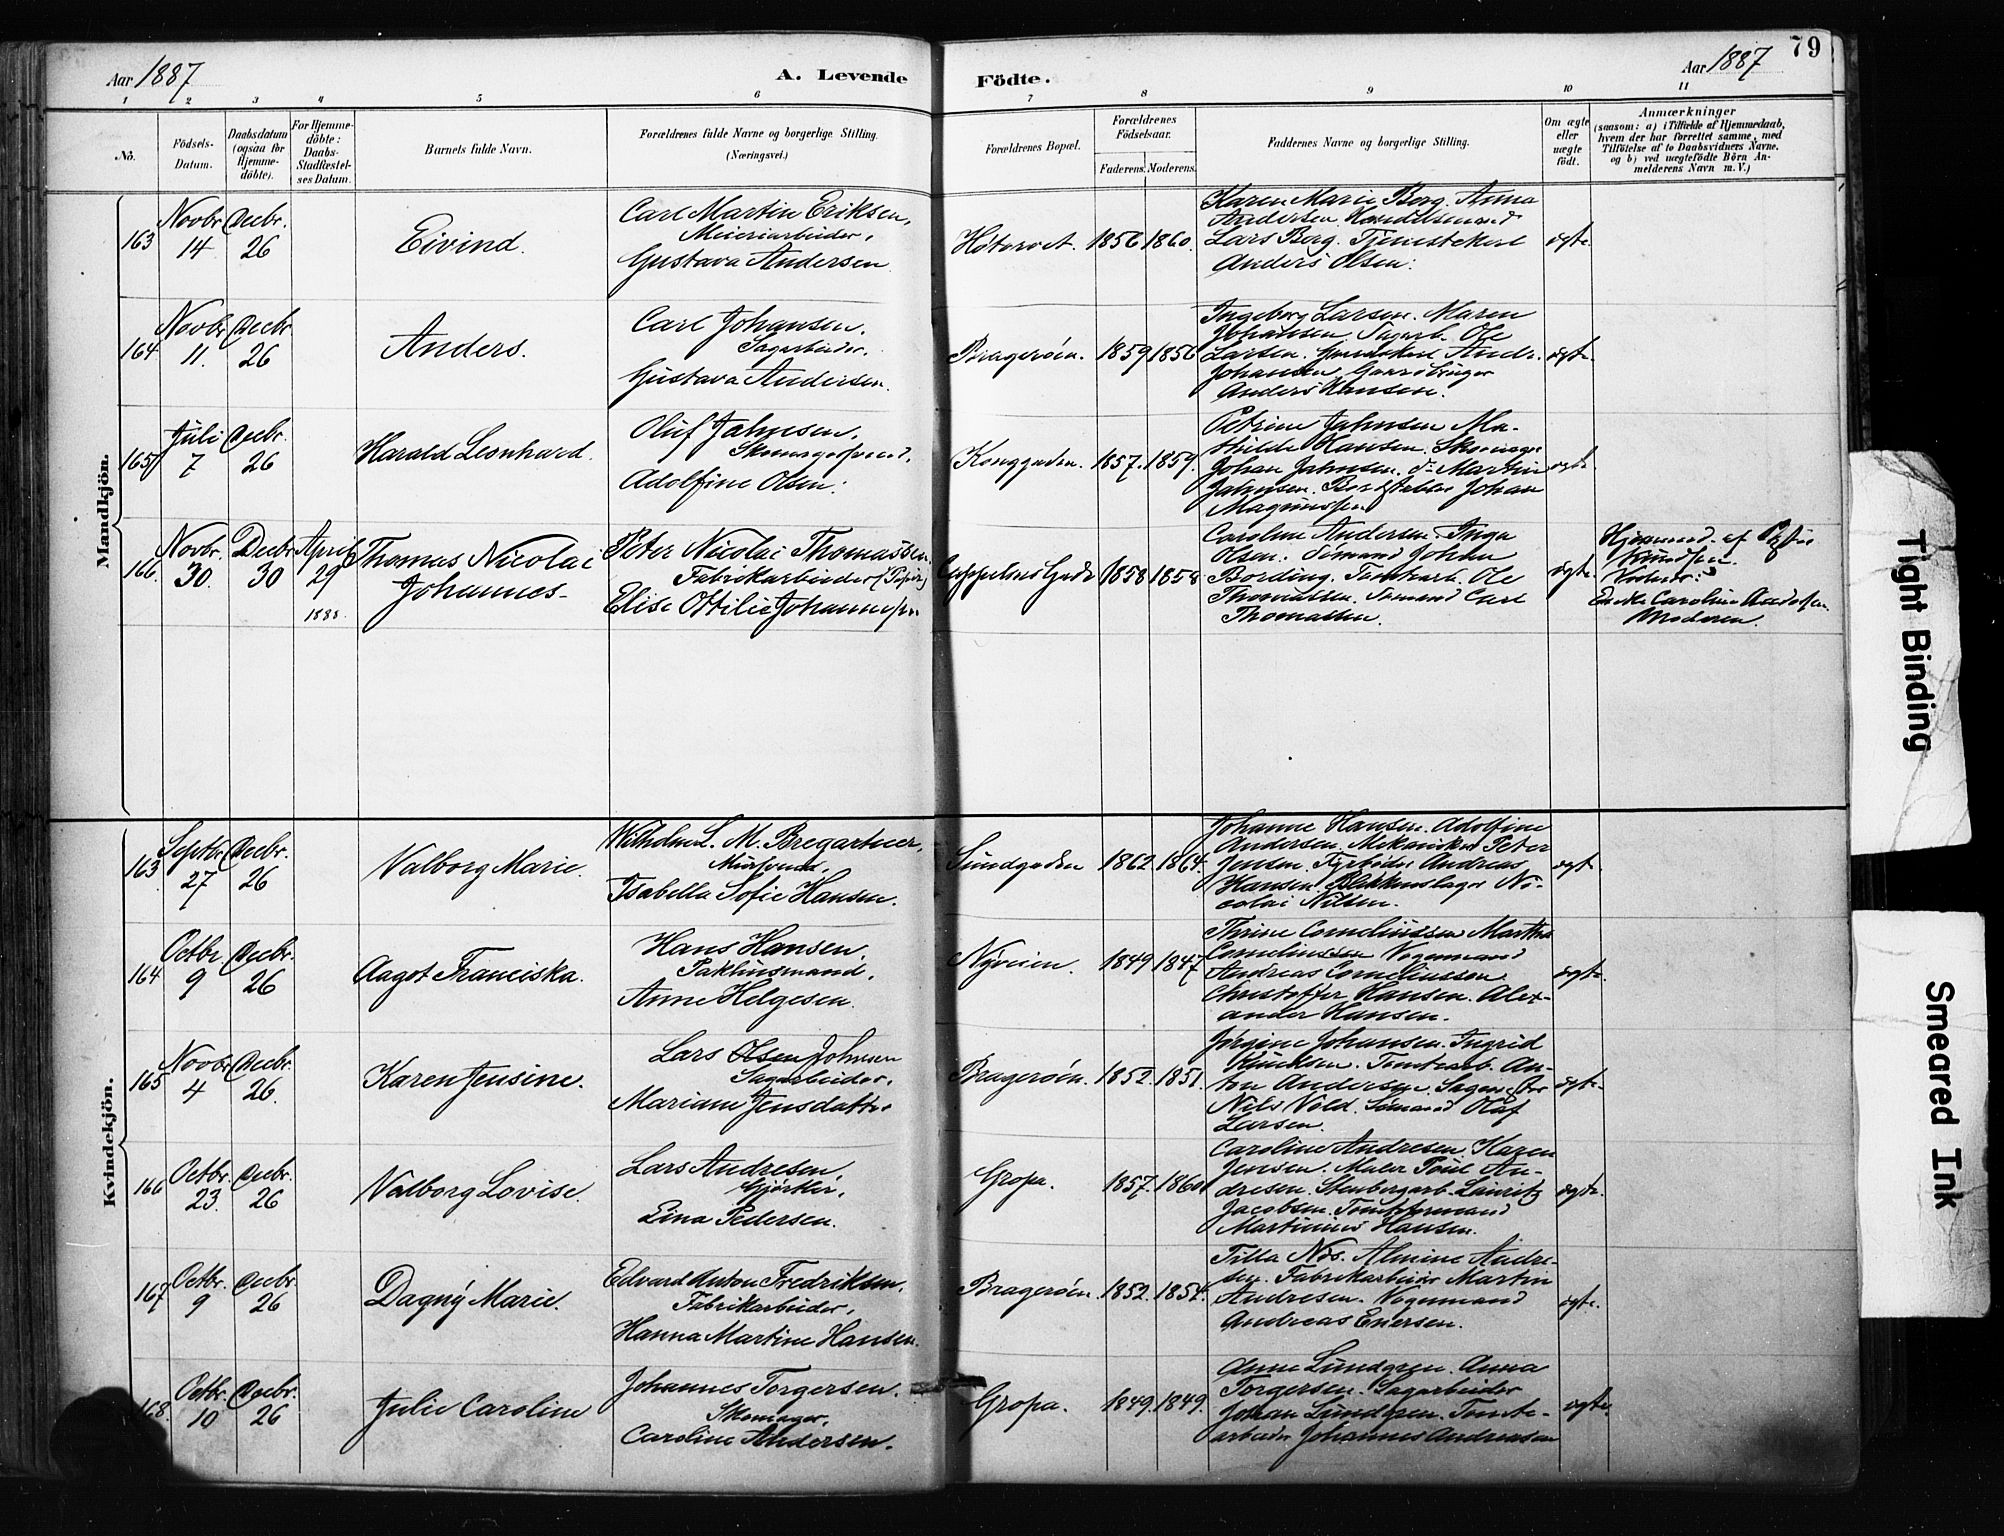 79
Aar 1887
A. Levende Födte.
Aar 1887
1 2 3 4 5 6 7 8 9 10 11
No.
Födsels-Datum.
Daabsdatum (ogsaa for Hjemme-döbte).
For Hjemme-döbte: Daabs-Stadfæstel-ses Datum.
Barnets fulde Navn.
Forældrenes fulde Navne og borgerlige Stilling.
(Næringsvei.)
Forældrenes Bopæl.
Forældrenes Födselsaar.
Faderens. Moderens.
Faddernes Navne og borgerlige Stilling.
Om ægte eller uægte födt.
Anmærkninger
(saasom: a) i Tilfælde af Hjemmedaab,
hvem der har forrettet samme, med
Tilföielse af to Daabsvidners Navne.
og b) ved uægtefödte Börn An-
melderens Navn m. V.)
Mandkjön.
163 Novbr. 14 Decbr. 26
Eivind.
Carl Martin Eriksen,
Meieriarbeider,
Gustava Andersen
Høtorvet. 1856 1860.
Karen Marie Berg. Anna
Andersen. Handelsmand
Lars Berg. Tjenestekarl
Anders Olsen.
ægte
164 Novbr. 11. Decbr. 26
Anders.
Carl Johansen.
Sagarbeider.
Gustava Andersen.
Bragerøen. 1859 1856
Ingeborg Larsen. Maren
Johansen. Sagarb. Ole
Larsen. Andr.
Johansen Gaardbruger
Anders Hansen.
ægte.
165 Juli 7 Decbr. 26
Harald Leonhard.
Oluf Jahnsen,
Skomagersvend,
Adolfine Olsen.
Konggaden. 1857. 1859.
Petrine Jahnsen Ma-
thilde Hansen. Skomager
Johan Jahnsen. do Martin
Jahnsen. Johan
Magnussen
ægte
166. Novbr. 30. Decbr 30 April 29 1888.
Thomas Nicolai
Johannes-
Peter Nicolai Thomassen.
Fabrikarbeider (Papir)
Elise Ottilie Johannessen
Cappelens Gade 1858 1858
Caroline Andersen. Inga
Olsen. Sømand Johan
Bording. Tomtearb. Ole
Thomassen. Sømand Carl
Thomassen.
ægte.
Hjemmed. af
Knudsen.
Vidner:
Enke Caroline Andersen
Moderen.
Kvindekjön.
163 Septbr 27 Decbr. 26
Valborg Marie.
Wilhelm L. M. Bregartner,
Mursvend,
Isabella Sofie Hansen.
Sundgaden 1862. 1864.
Johanne Hansen. Adolfine
Andersen. Mekaniker Peter
Jensen. Fyrbøder Andreas
Hansen Blikkenslager Ni-
colai Nilsen.
ægte.
164 Octbr. 9 Decbr. 26
Aagot Franciska.
Hans Hansen.
Pakhusmand,
Anne Helgesen.
Nyveien. 1849 1847.
Thrine Corneliussen Martha
Corneliussen Vognmand
Andreas Corneliussen
Christoffer Hansen. Alex-
ander Hansen.
ægte.
165 Novbr. 4 Decbr. 26.
Karen Jensine.
Lars Olsen Johnsen
Sagarbeider,
Mariane Jensdatter
Bragerøen. 1852. 1851.
Jørgine Johansen. Ingrid
Knudsen. Tomtearb. An-
ton Andersen
Nils Vold. Sømand Olaf
Larsen.
ægte.
166 Octbr. 23. Decbr. 26
Valborg Lovise.
Lars Andresen,
Gjørtler,
Lina Pedersen.
Gropa. 1857. 1860
Caroline Andresen. Karen
Jensen. Maler Poul An-
dresen. Stenbergarb. Lauritz
Jacobsen. Tomtformand
Martinius Hansen.
ægte.
167 Octbr. 9 Decbr. 26
Dagny Marie.
Edvard Anton Fredriksen,
Fabrikarbeider,
Hanna Martine Hansen.
Bragerøen. 1852. 1854.
Tilla Næs. Almine Andre-
sen. Fabrikarbeider Martin
Andresen. Vognmand
Andreas Enersen.
ægte.
168. Octbr. 10 Decbr. 26
Julie Caroline
Johannes Torgersen.
Skomager,
Caroline Andersen.
Gropa. 1849. 1849.
Anne Lundgren. Anna
Torgersen. Sagarbeider
Johan Lundgren. Tomte-
arbeider Johannes Andreasen
ægte.
Tight Binding
Smeared Ink